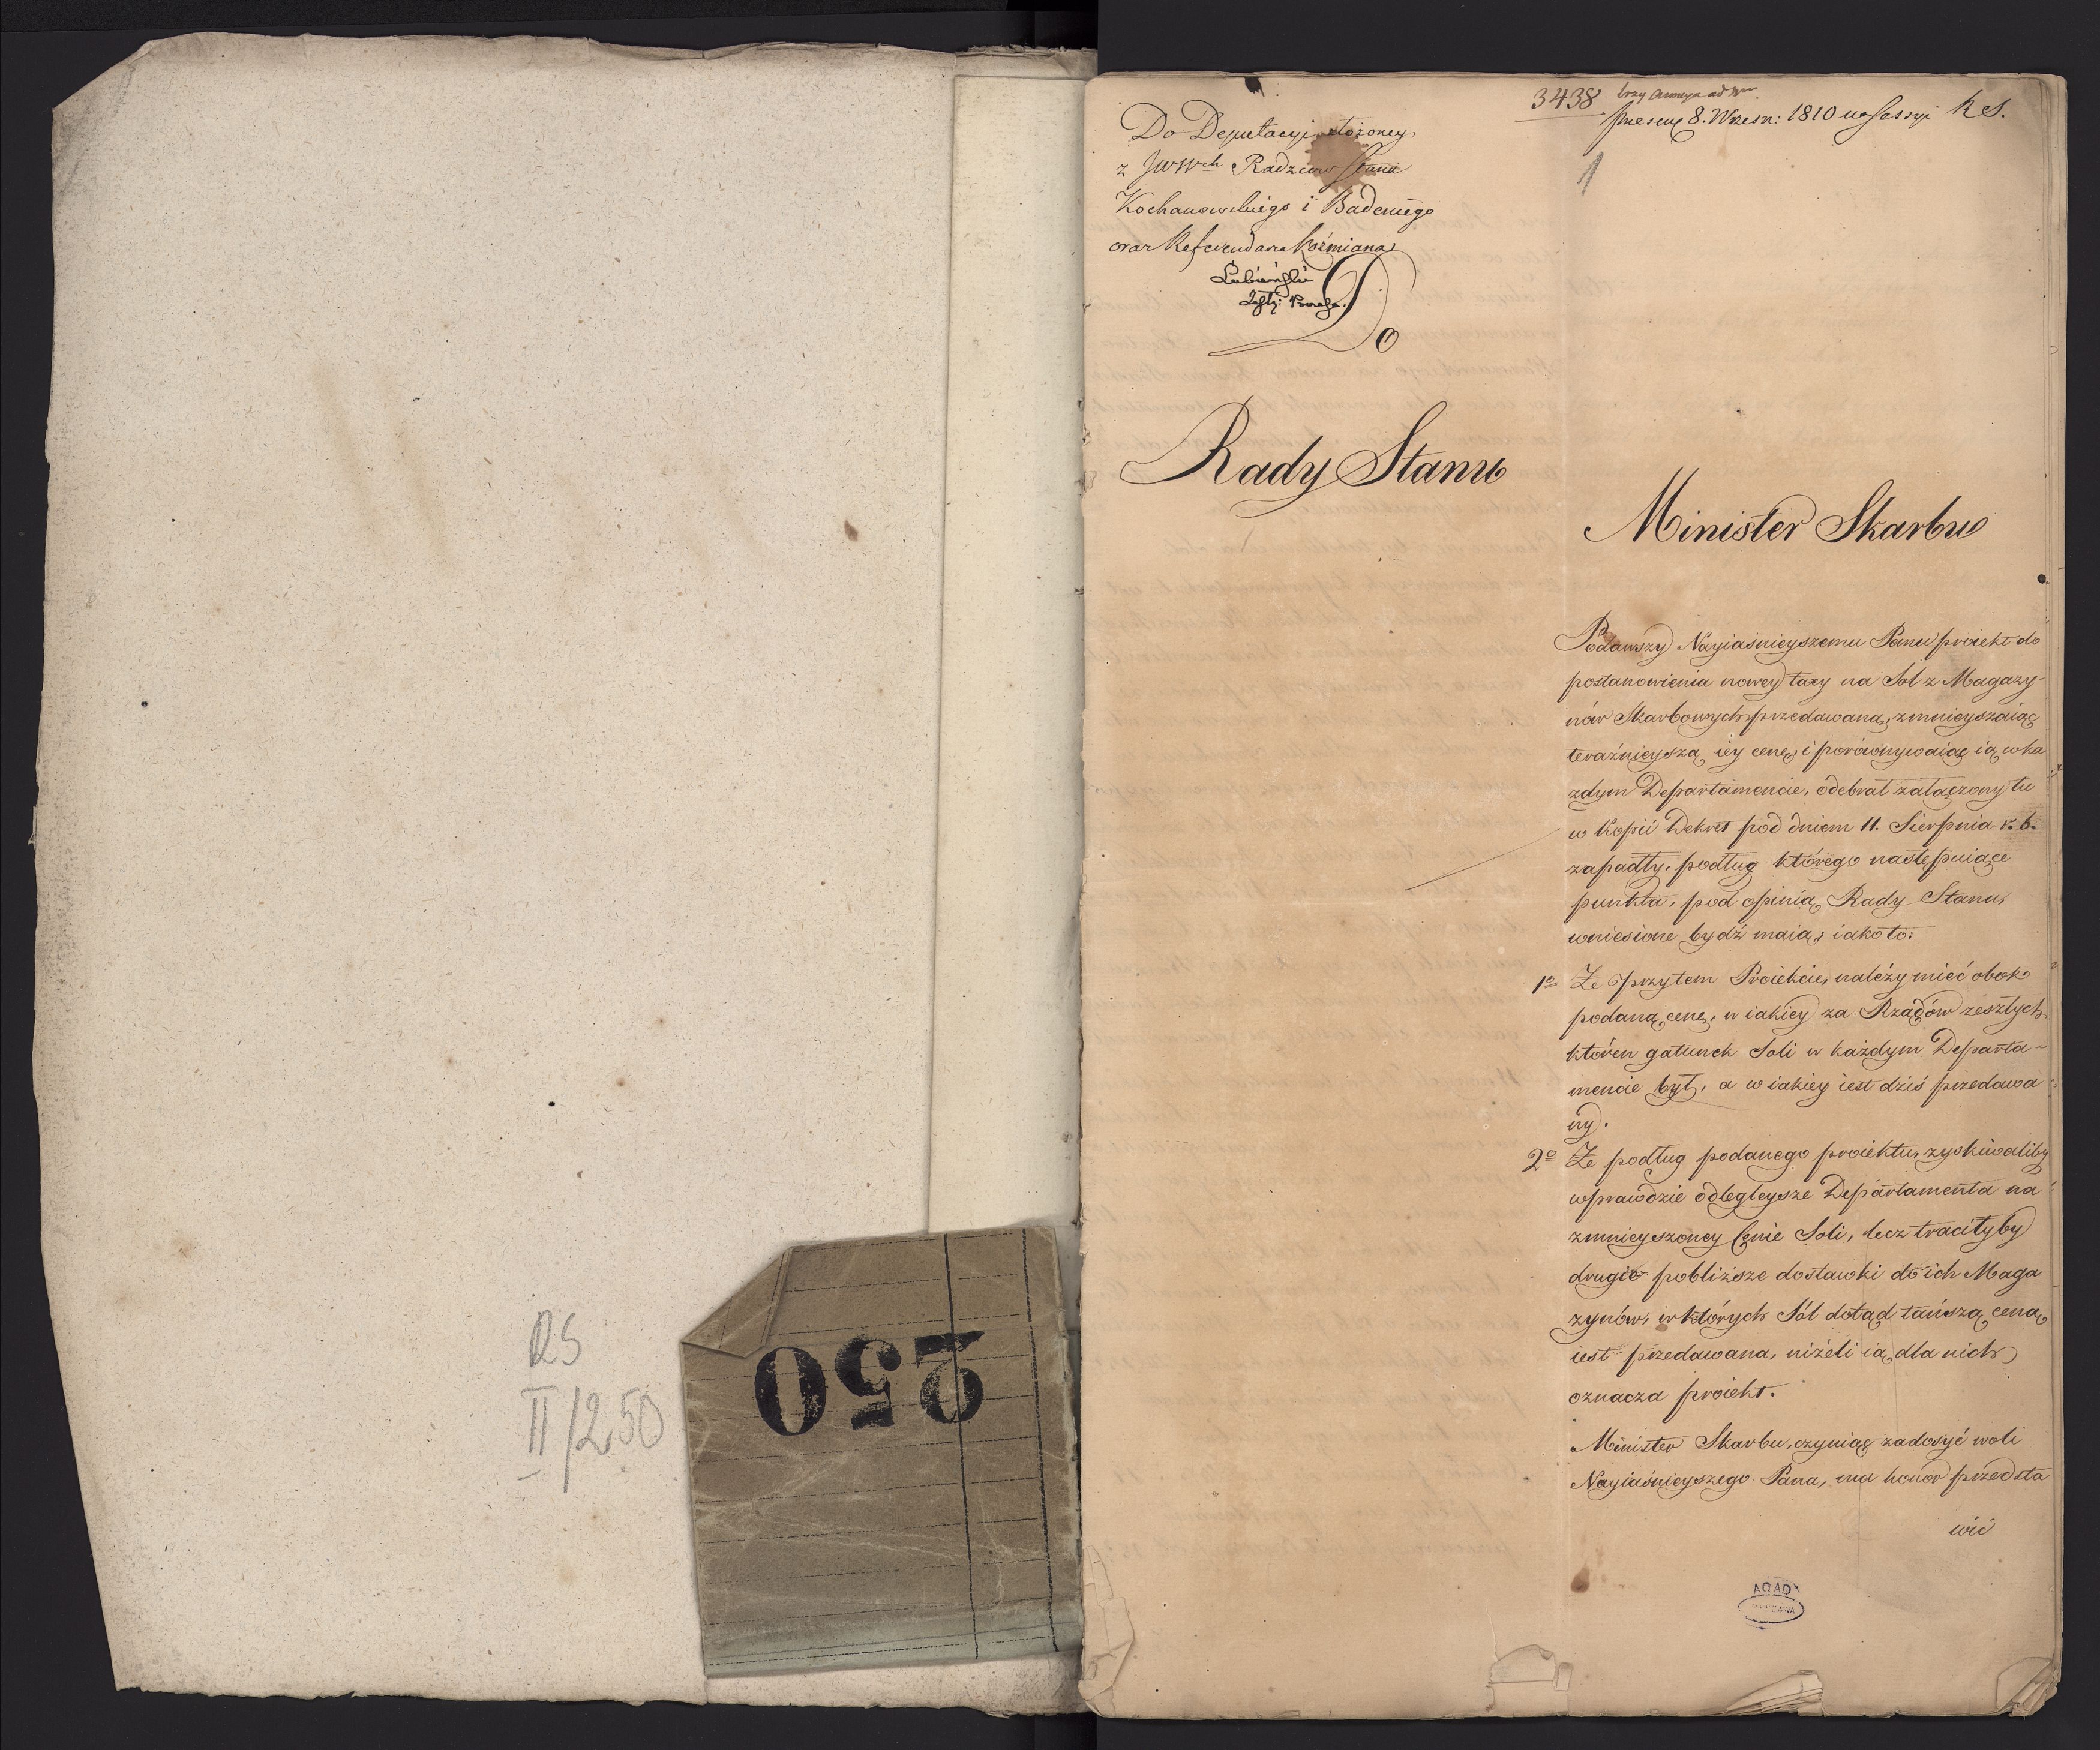 RS
II/250
250
3438.
8. Wrzesn: 1810 na Sessyi R S.
1
Do Deputacyi złożoney
z JWWch Radzców Stanu
Kochanowskiego i Badeniego
oraz Referendarza Koźmiana
Łubieński
Do
Rady Stanu
Minister Skarbu
Podawszy Nayiaśnieyszemu Panu proiekt do
postanowienia nowey taxy na Sol z Magazy-
nów Skarbowych przedawaną, zmnieyszaiąc
teraźnieyszą iey cenę, i porównywaiąc ią w ka
zdym Departamencie, odebrał załączony tu
w Kopii Dekret pod dniem 11. Sierpnia r. b.
zapadły, podług którego następuiące
punkta, pod opinią Rady Stanu,
wniesione bydź maią; iako to:
1o Ze przytem Proiekcie, należy mieć obok
podaną cenę, w iakiey za Rządów zeszłych
któren gatunek Soli w każdym Departa-
mencie był, a w iakiey iest dziś przedawa
ny.
2o Ze podług podanego proiektu, zyskiwaliby
wprawdzie odlegleysze Departamenta na
zmnieyszoney Cenie Soli, lecz traciłyby
drugie pobliższe dostawki do ich Maga
zynów, w których Sól dotąd tańszą ceną
iest przedawana, niżeli ią dla nich
oznacza proiekt.
Minister Skarbu, czyniąc zadosyć woli
Nayiaśnieyszego Pana, ma honor przedsta
wić
AGAD
WARSZAWA